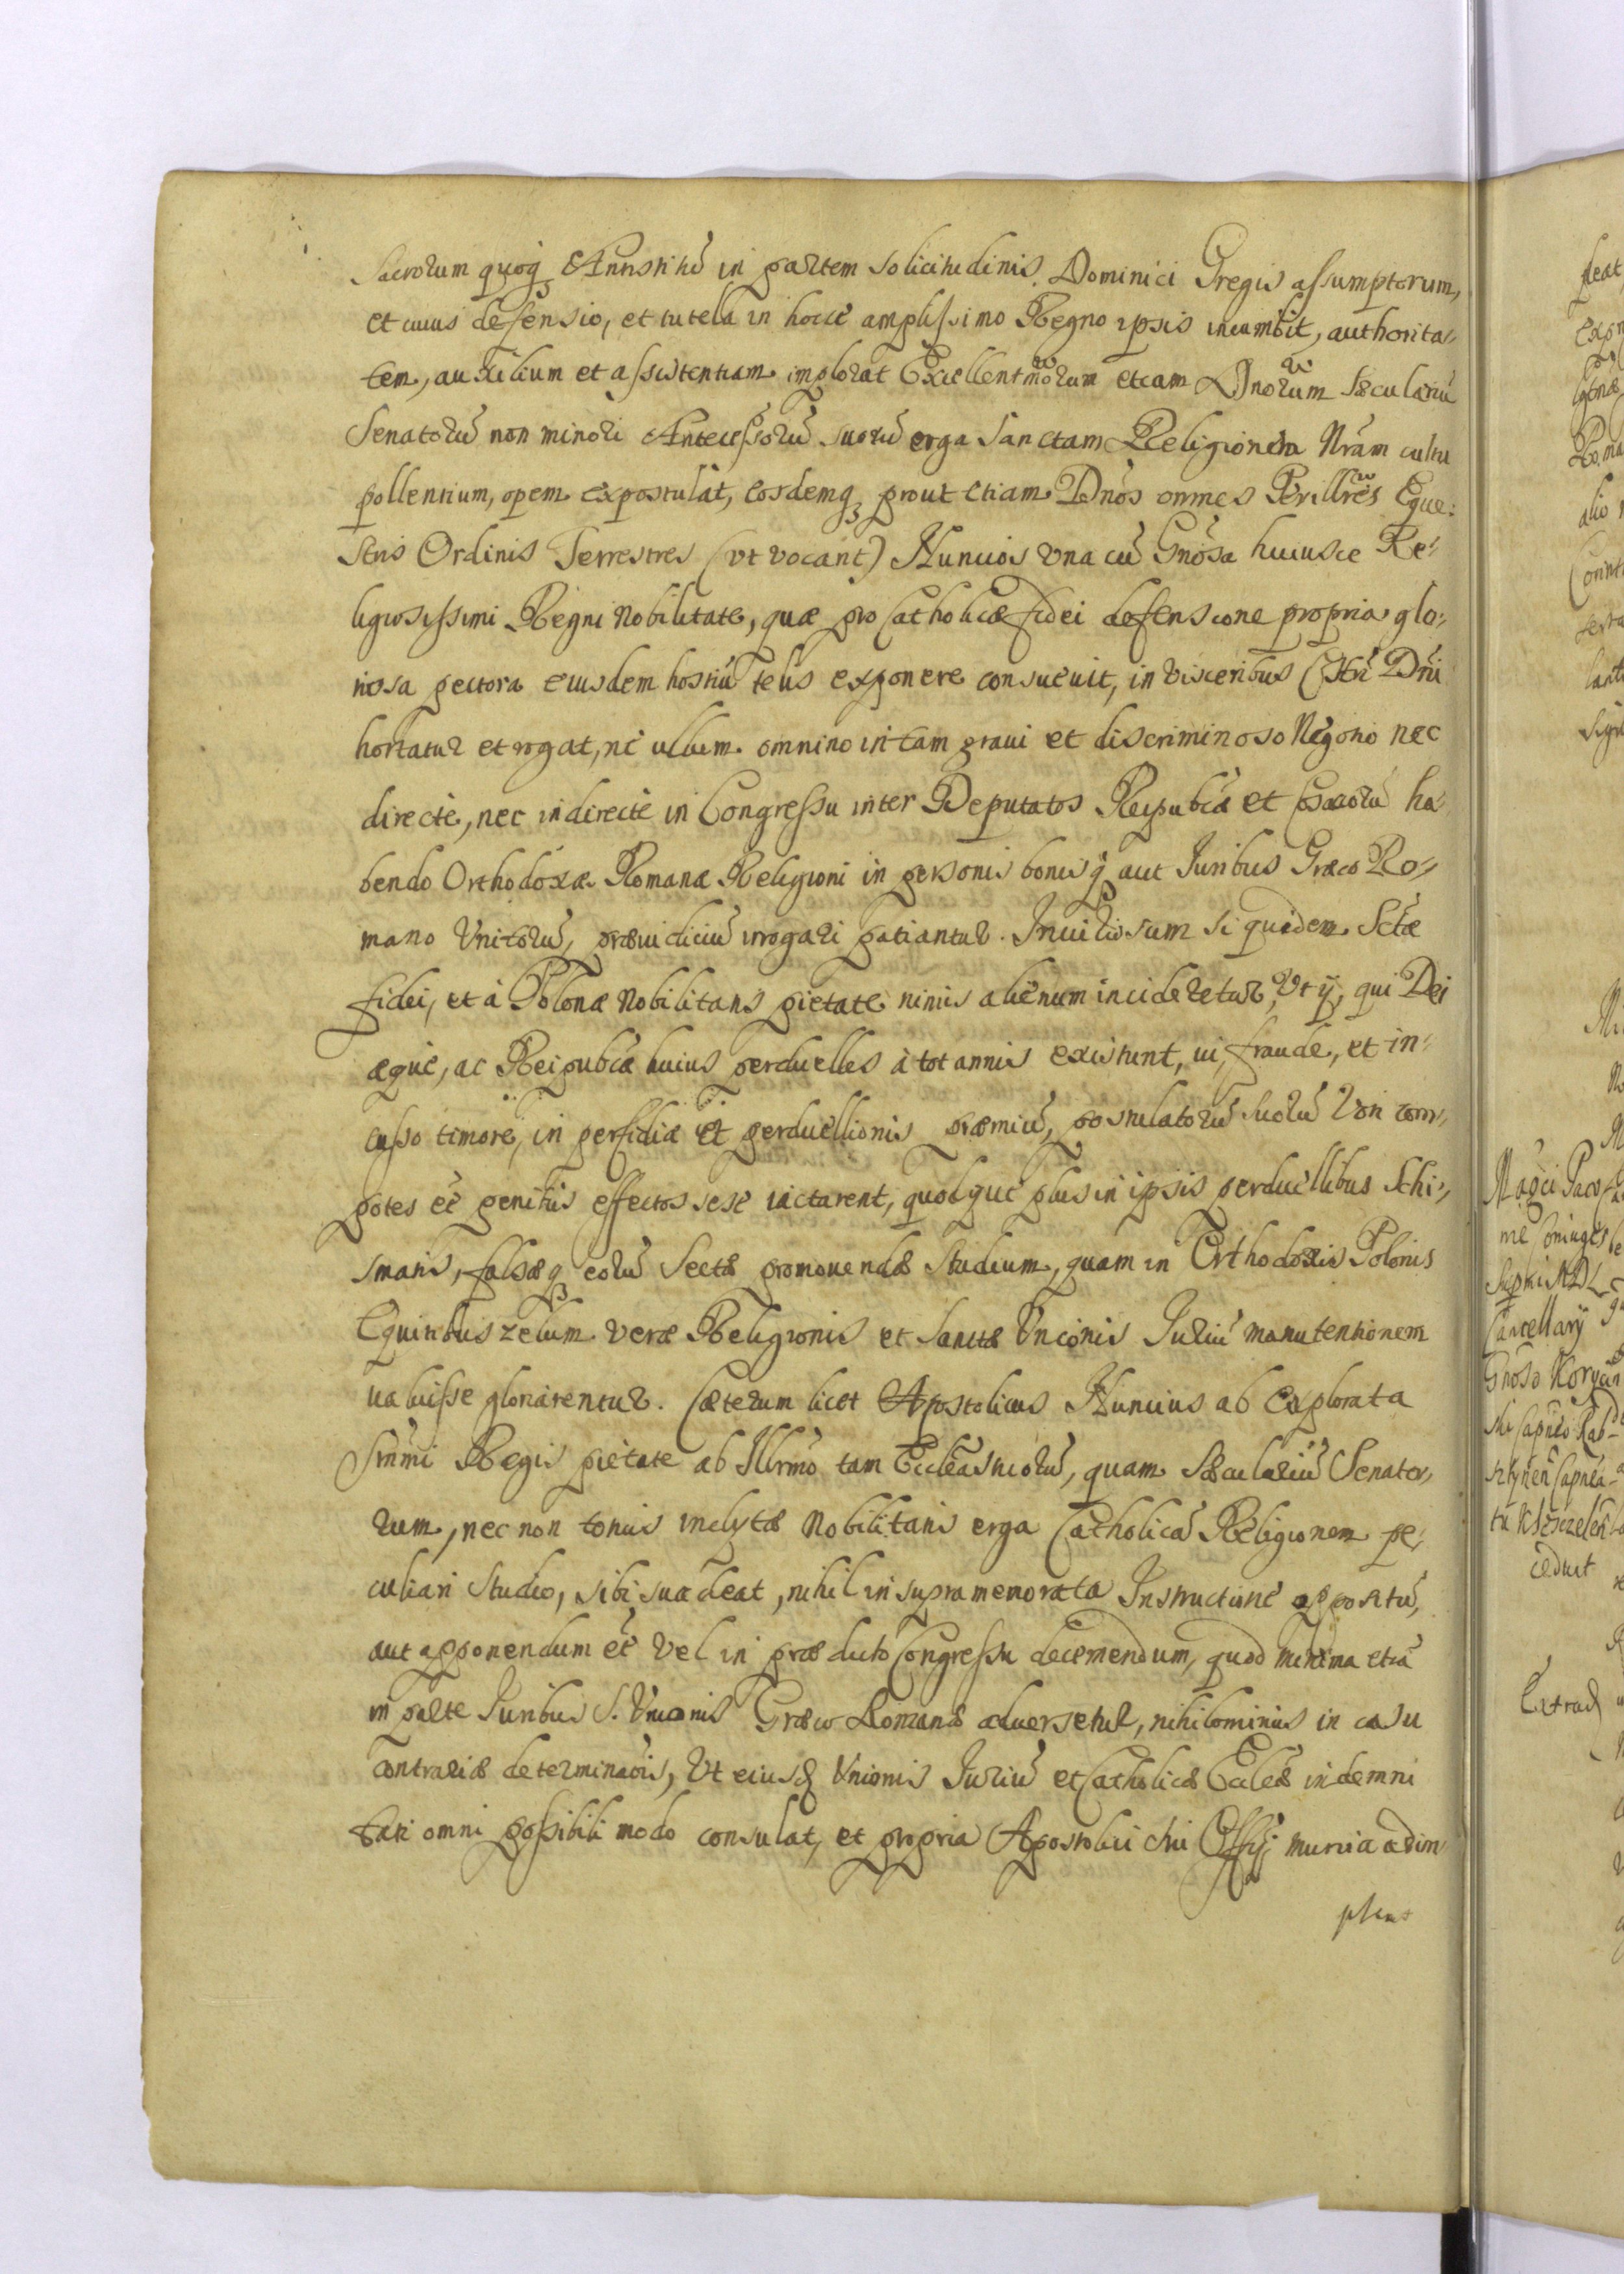 Sacrorum quoq3 Antistitũ in partem solicitudinis Dominici Gregis assumptorum,
et cuius defensio, et tutela in hocce amplissimo Regno ipsis incumbit, authorita-
tem, auxilium et assistentiam implorat Excellentmõrum etiam DDnorum Sæculariũ
Senatorũ non minori Antecessorũ suorũ erga Sanctam Religionem Nrãm cultu
pollentium, opem expostulat, eosdemq3 prout etiam DDnos omnes Perillres Eque-
stris Ordinis Terrestres (vt vocant) Nuncios vna cũ Gnosa huiusce Re-
ligiosissimi Regni Nobilitate, quæ pro Catholicæ fidei defensione propria glo-
riosa pectora eiusdem hostiũ telis exponere consueuit, in visceribus Chri Dni
hortatur et rogat, ne ullum omnino in tam graui et discriminoso Negotio nec
directe, nec indirecte in Congressu inter Deputatos Reipubcæ et Cosacorũ ha-
bendo Orthodoxæ Romanæ Religioni in personis bonisq3 aut Juribus Græco Ro-
mano Vnitorũ, præiudiciũ irrogari patiantur. Inuidiosum siquidem Sctæ
fidei, et à Polonæ Nobilitatis pietate nimis alienum incideretur, Vt ij, qui Dei
æque, ac Reipubcæ huius perduelles à tot annis existunt, ui, fraude, et in-
cusso timore, in perfidiæ et perduellionis præmiũ, postulatorũ suorũ Voti com-
potes eẽ penitus effectos sese iactarent, quodque plus in ipsis perduellibus Schi-
smatis, falsæq3 eorũ Sectæ promouendæ Studium, quam in Orthodoxis Polonis
Equitibus zelum veræ Religionis et Sanctæ Vnionis Juriũ manutentionem
ualuisse gloriarentur. Cæterum licet Apostolicus Nuncius ab explorata
Smmi Regis pietate ab Illrmo tam Eccleasticorũ, quam Sæculariũ Senato-
rum, nec non totius inclytæ Nobilitatis erga Catholicã Religionem pe-
culiari Studio, sibi suadeat, nihil in supramemorata Instructione appositũ,
aut apponendum eẽ vel in prædicto Congressu decernendum, quod minima etiã
in parte Juribus S. Vnionis Græco Romanæ aduersetur, nihilominus in casu
contrariæ determinaõis, Vt eiusd Vnionis Juriũ et Catholicæ Eccleæ indemni
tati omni possibili modo consulat, et propria Apostolici sui Officij munia adim
pleat